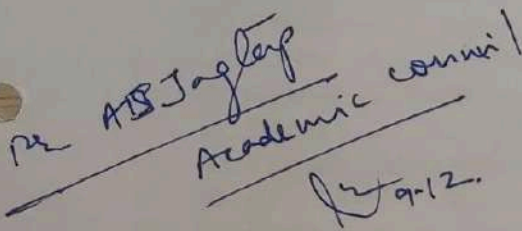 ABJagtap
Academic council
9-12.